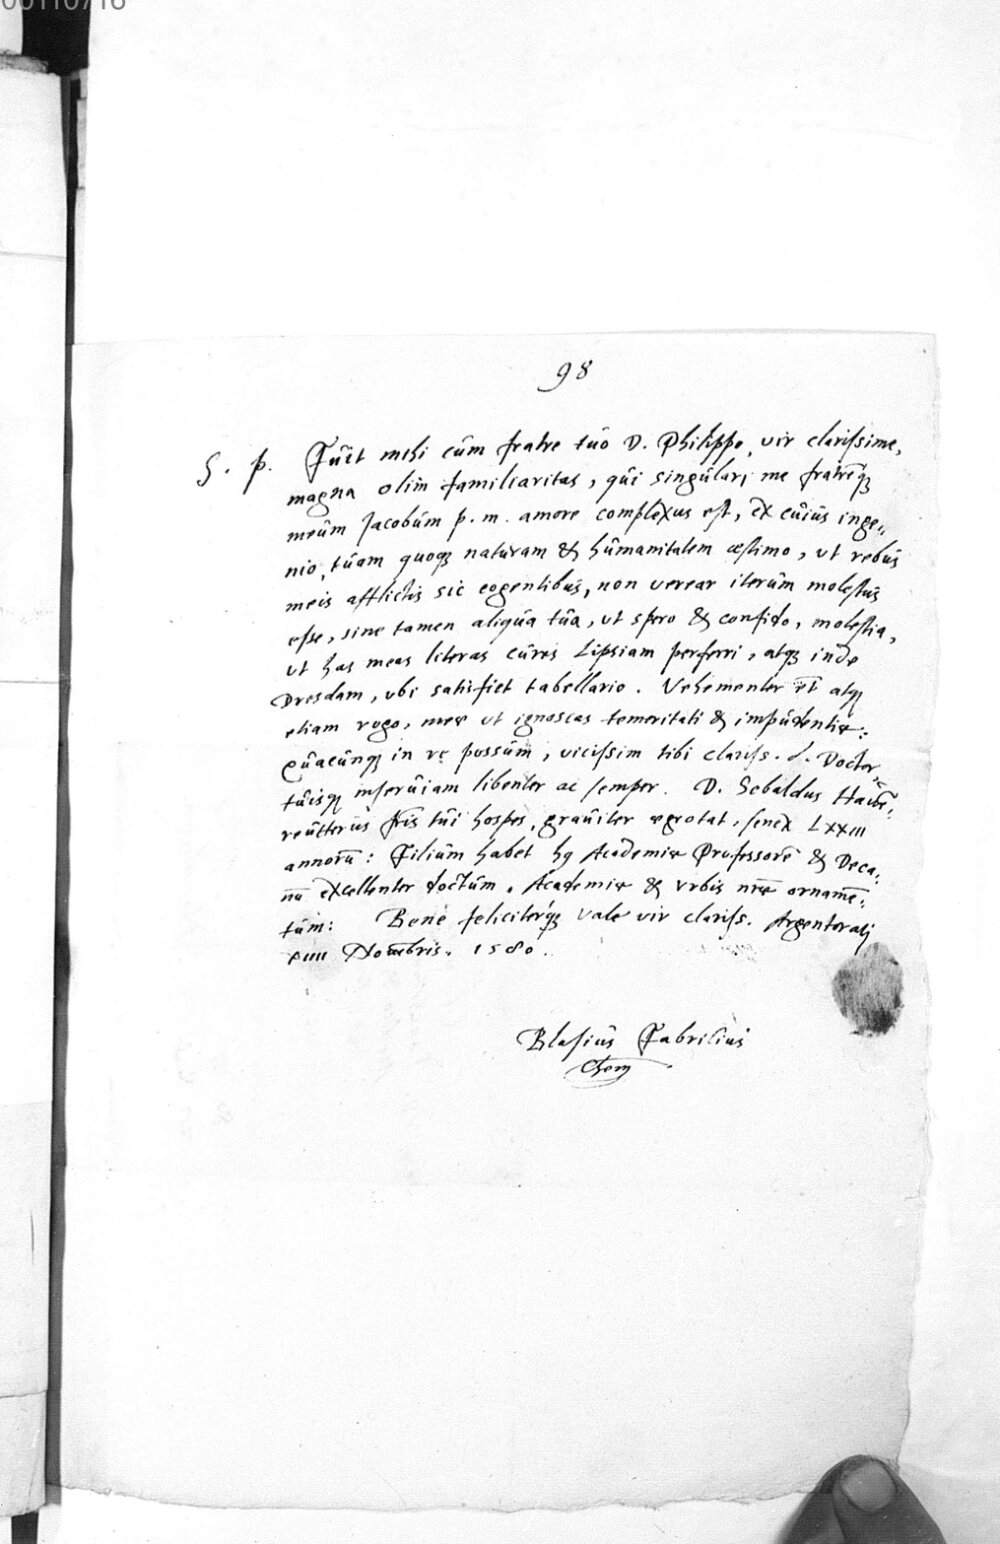 00110716
98
S. p. Fuit mihi cum fratre tuo D. Philippo, vir clarissime,
magna olim familiaritas, qui singulari me fratrēq;
meum Jacobum p. m. amore complexus est, ex cuius inge„
nio, tuam quoq; naturam & humanitatem æstimo, ut rebus
meis afflictis sic cogentibus, non verear iterum molestus
esse, sine tamen aliqua tua, ut spero & confido, molestia,
ut has meas literas cures Lipsiam perferri, atq; inde
Dresdam, ubi satisfiet tabellario. Vehementer et atq;
etiam rogo, meæ ut ignoscas temeritati & impudentiæ:
Quacunq; in re possum, vicissim tibi clariss. d. Doctor,
tuisq; inserviam libenter ac semper. D. Sebaldus Hawē„
reutterus fris tui hospes, graviter ægrotat, senex LXXIII
annorū: Filium habet hq Academiæ Professorē & Deca„
nū excellenter doctum, Academiæ & urbis nræ ornamē„
tum: Bene feliciterq; vale vir clariss. Argentorati
XIIII Novēbris. 1580.
Blasius Fabricius
Chem